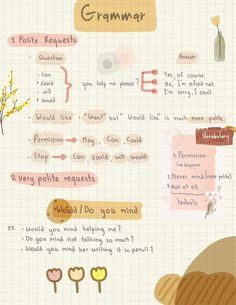 Grammar
1 Polite Requests
Question
Answer
- Can
- Could
- will
- Would
you help me please?
Yes, of course.
No, I'm afraid not.
I'm sorry, I can't.
Would like → "Want" but "Would like" is much more polite.
Permission → May, Can, Could
Stop → Can, could, will, would.
Vocabulary
1. Permission
2. Never mind (more polite)
3. Not at all
2 Very polite requests
Would / Do you mind
ex - Would you mind helping me?
- Do you mind not talking so much?
- Would you mind her writing it in pencil?